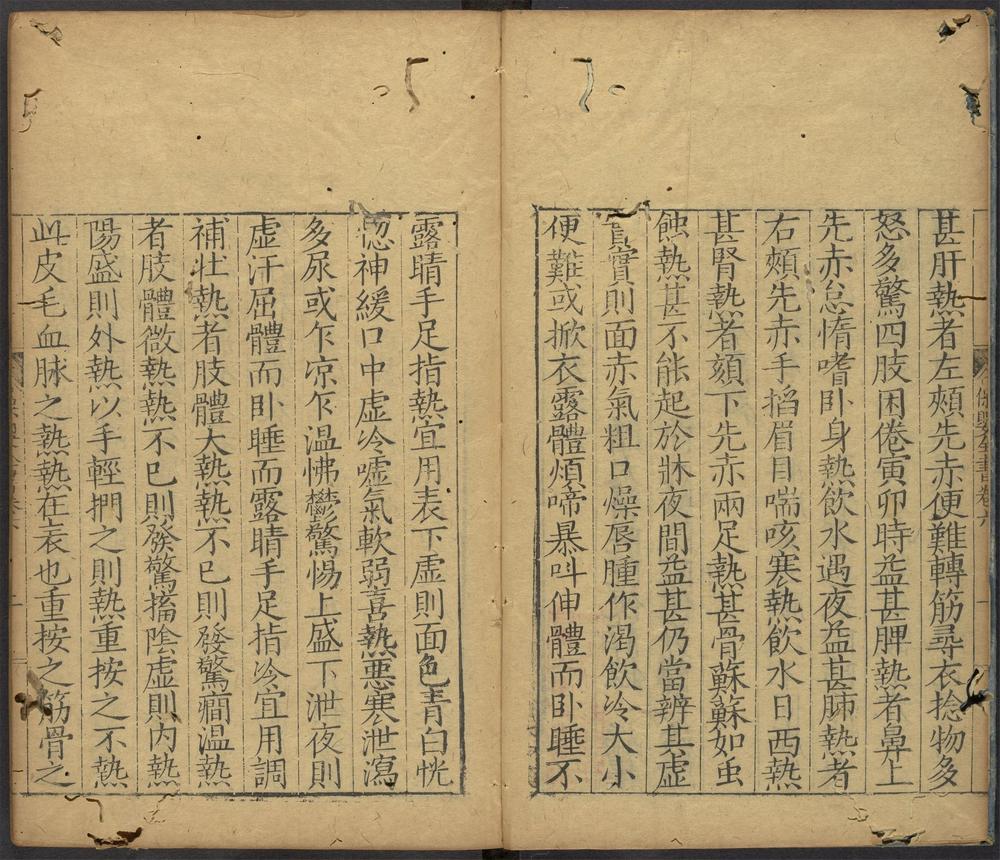 甚肝熱者左頰先赤便難轉筋尋衣捻物多
怒多驚四肢困倦寅卯時益甚脾熱者鼻上
先赤怠惰嗜卧身熱飲水遇夜益甚肺熱者
右頰先赤手掐眉目喘咳寒熱飲水日西熱
甚腎熱者頦下先赤兩足熱甚骨蘇蘇如虫
蝕熱甚不能起於牀夜間益甚仍當辨其虛
實實則面赤氣粗口燥唇腫作渴飲冷大小
便難或掀衣露體煩啼暴叫伸體而卧睡不
露睛手足指熱宜用表下虛則面色青白恍
惚神緩口中虛冷噓氣軟弱喜熱惡寒泄瀉
多尿或乍凉乍溫怫鬱驚惕上盛下泄夜則
虛汗屈體而卧睡而露睛手足指冷宜用調
補壯熱者肢體大熱熱不已則發驚癇溫熱
者肢體微熱熱不已則發驚搐陰虛則內熱
陽盛則外熱以手輕捫之則熱重按之不熱
此皮毛血脉之熱熱在表也重按之筋骨之